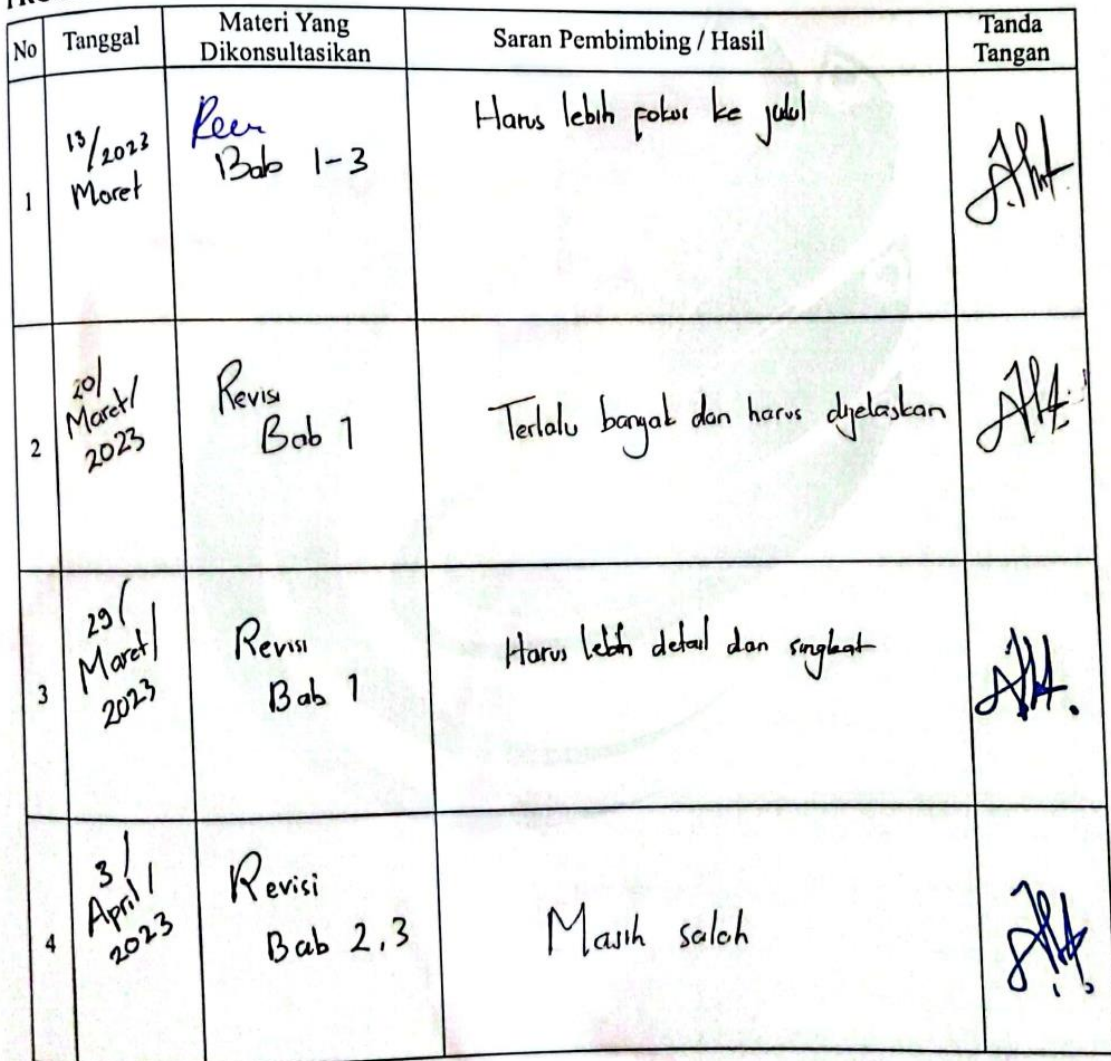 No
Tanggal
Materi Yang
Dikonsultasikan
Saran Pembimbing / Hasil
Tanda
Tangan
1
13/2023
Maret
Bab 1-3
Harus lebih fokus ke judul
2
20/
Maret/
2023
Revisi
Bab 1
Terlalu banyak dan harus dijelaskan
3
29/
Maret/
2023
Revisi
Bab 1
Harus lebih detail dan singkat
4
3/
April/
2023
Revisi
Bab 2,3
Masih salah